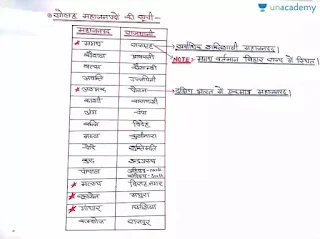 unacademy
सोलह महाजनपदो की सूची -
महाजनपद राजधानी
* मगध राजगृह → सर्वाधिक शक्तिशाली महाजनपद।
NOTE:→ मगध वर्तमान बिहार राज्य में स्थित।
कौशल श्रावस्ती
वत्स कौशाम्बी
अवन्ति उज्जयिनी
* अश्मक पोटन → दक्षिण भारत में एकमात्र महाजनपद।
काशी वाराणसी
अंग चंपा
वज्जि विदेह
मल्ल कुशीनारा
चेदि शक्तिमति
कुरु इन्द्रप्रस्थ
पांचाल
* मत्स्य विराटनगर
* शूरसेन मथुरा
* गांधार तक्षशिला
कम्बोज राजपुर